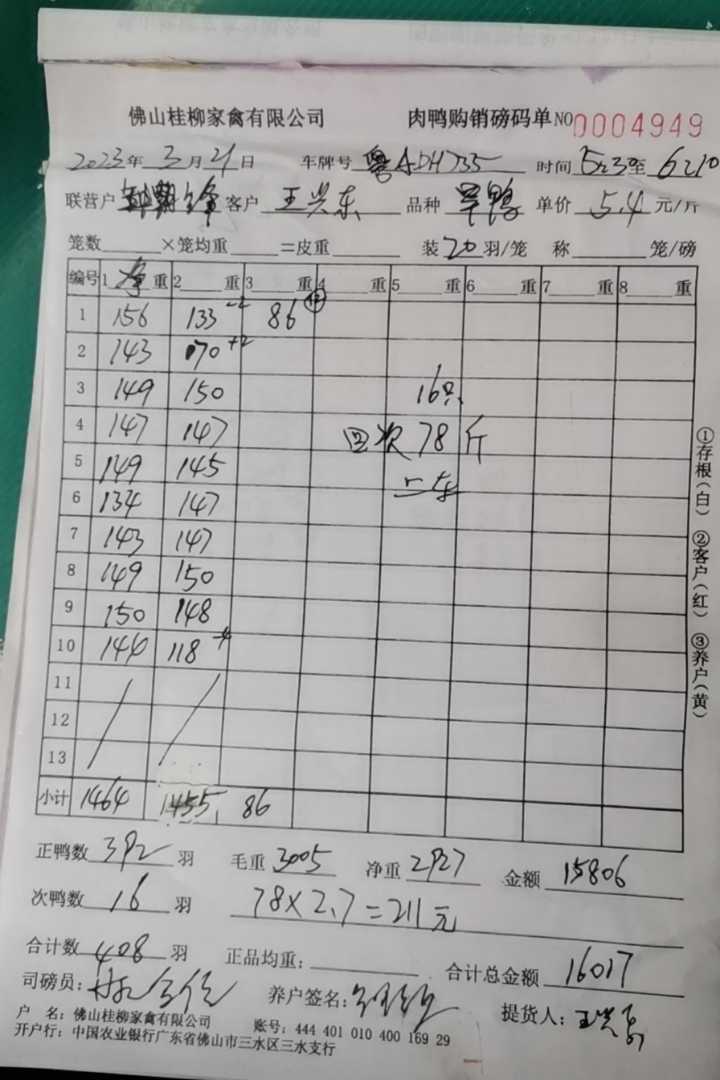 佛山桂柳家禽有限公司 肉鸭购销磅码单 NO 0004949
2023年3月21日 车牌号 粤ADH735 时间 5:30至6:10
联营户 客户 王兴东 品种 旱鸭 单价 5.4 元/斤
笼数 ×笼均重 =皮重 装20羽/笼 称 笼/磅
编号 1 净 重 2 重 3 重 4 重 5 重 6 重 7 重 8 重
1 156 133 -2 86 ⑫
2 143 170 +2
3 149 150 16只
4 147 147 回次78斤
5 149 145 上车
6 134 147
7 143 147
8 149 150
9 150 148
10 144 118 -4
11
12
13
小计 1464 1455 86
正鸭数 392 羽 毛重 3005 净重 2927 金额 15806
次鸭数 16 羽 78×2.7=211元
合计数 408 羽 正品均重: 合计总金额 16017
司磅员: 养户签名: 提货人: 王兴东
户 名: 佛山桂柳家禽有限公司 账号: 444 401 010 400 169 29
开户行: 中国农业银行广东省佛山市三水区三水支行
①存根(白) ②客户(红) ③养户(黄)